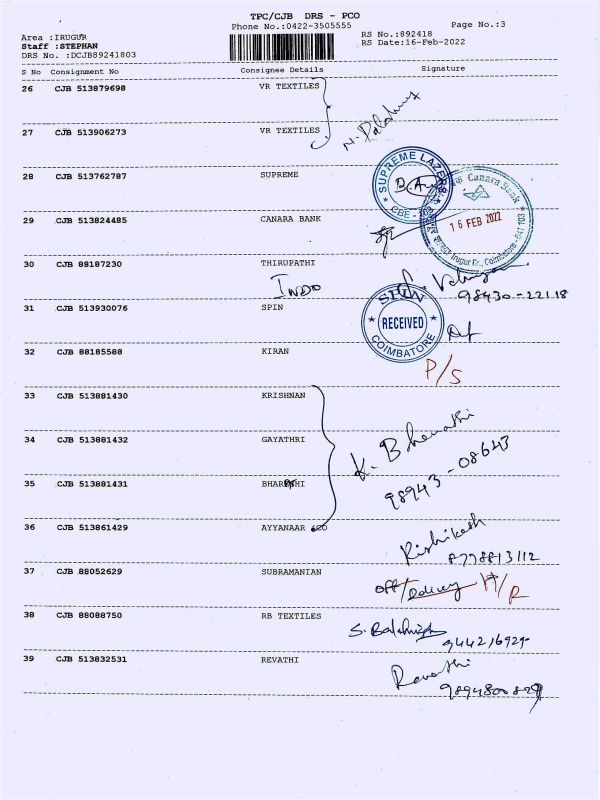 TPC/CJB DRS - PCO
Phone No.:0422-3505555
Page No.:3
Area :IRUGUR
Staff :STEPHAN
DRS No. :DCJB89241803
RS No.:892418
RS Date:16-Feb-2022
S No Consignment No Consignee Details Signature
26 CJB 513879698 VR TEXTILES
27 CJB 513906273 VR TEXTILES
28 CJB 513762787 SUPREME
SUPREME LAZERS
29 CJB 513824485 CANARA BANK
Canara Bank
16 FEB 2022
30 CJB 88187230 THIRUPATHI
INDO
98430-22118
31 CJB 513930076 SPIN
RECEIVED
COIMBATORE
32 CJB 88185588 KIRAN
P/S
33 CJB 513881430 KRISHNAN
34 CJB 513881432 GAYATHRI
K. Bharathi
98943-08643
35 CJB 513881431 BHARATHI
36 CJB 513861429 AYYANAAR &CO
Rishikesh
8778813112
37 CJB 88052629 SUBRAMANIAN
off/Delivery H/R
38 CJB 88088750 RB TEXTILES
39 CJB 513832531 REVATHI
Revathi